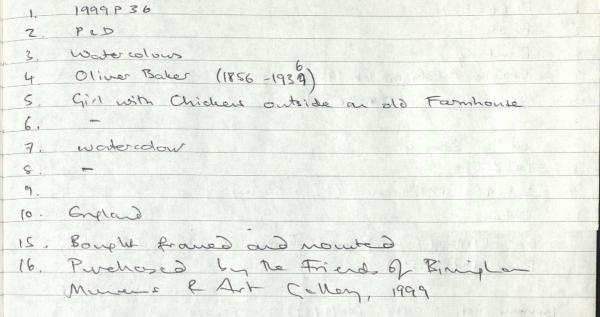 1. 1999 P 36
2. P & D
3. Watercolours
4 Oliver Baker (1856 - 1939 6)
5 Girl with Chickens outside an old Farmhouse
6. -
7. Watercolour
8. -
9.
10. England
15. Bought framed and mounted
16. Purchased by the Friends of Birmingham
Museums & Art Gallery, 1999